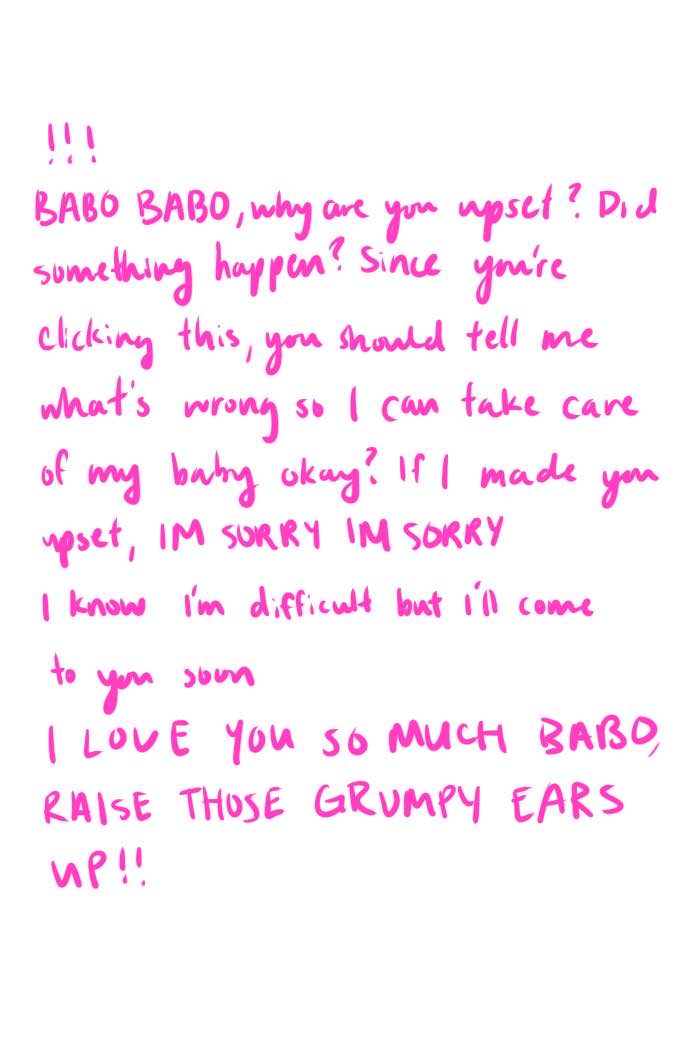 !!!
BABO BABO, why are you upset? Did
something happen? Since you're
clicking this, you should tell me
what's wrong so I can take care
of my baby okay? If I made you
upset, IM SORRY IM SORRY
I know I'm difficult but I'll come
to you soon
I LOVE YOU SO MUCH BABO,
RAISE THOSE GRUMPY EARS
UP!!